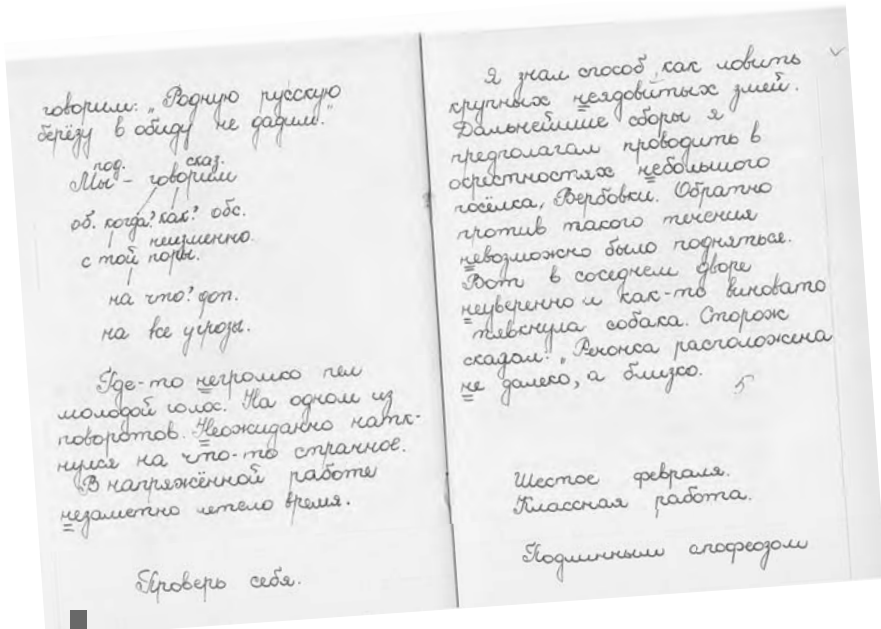 говорим: „Родную русскую
берёзу в обиду не дадим."
под. сказ.
Мы – говорим
об. когда? как? обс.
неизменно.
с той поры.
на что? доп.
на все угрозы.
Где-то негромко пел
молодой голос. На одном из
поворотов. Неожиданно натк-
нулся на что-то странное.
В напряжённой работе
незаметно летело время.
Проверь себя.
Я знал способ, как ловить
крупных неядовитых змей.
Дальнейшие сборы я
предполагал проводить в
окрестностях небольшого
посёлка, Вербовки. Обратно
против такого течения
невозможно было подняться.
Вот в соседнем дворе
неуверенно и как-то виновато
тявкнула собака. Сторож
сказал: „Речонка расположена
не далеко, а близко.
5
Шестое февраля.
Классная работа.
Подлинным апофеозом